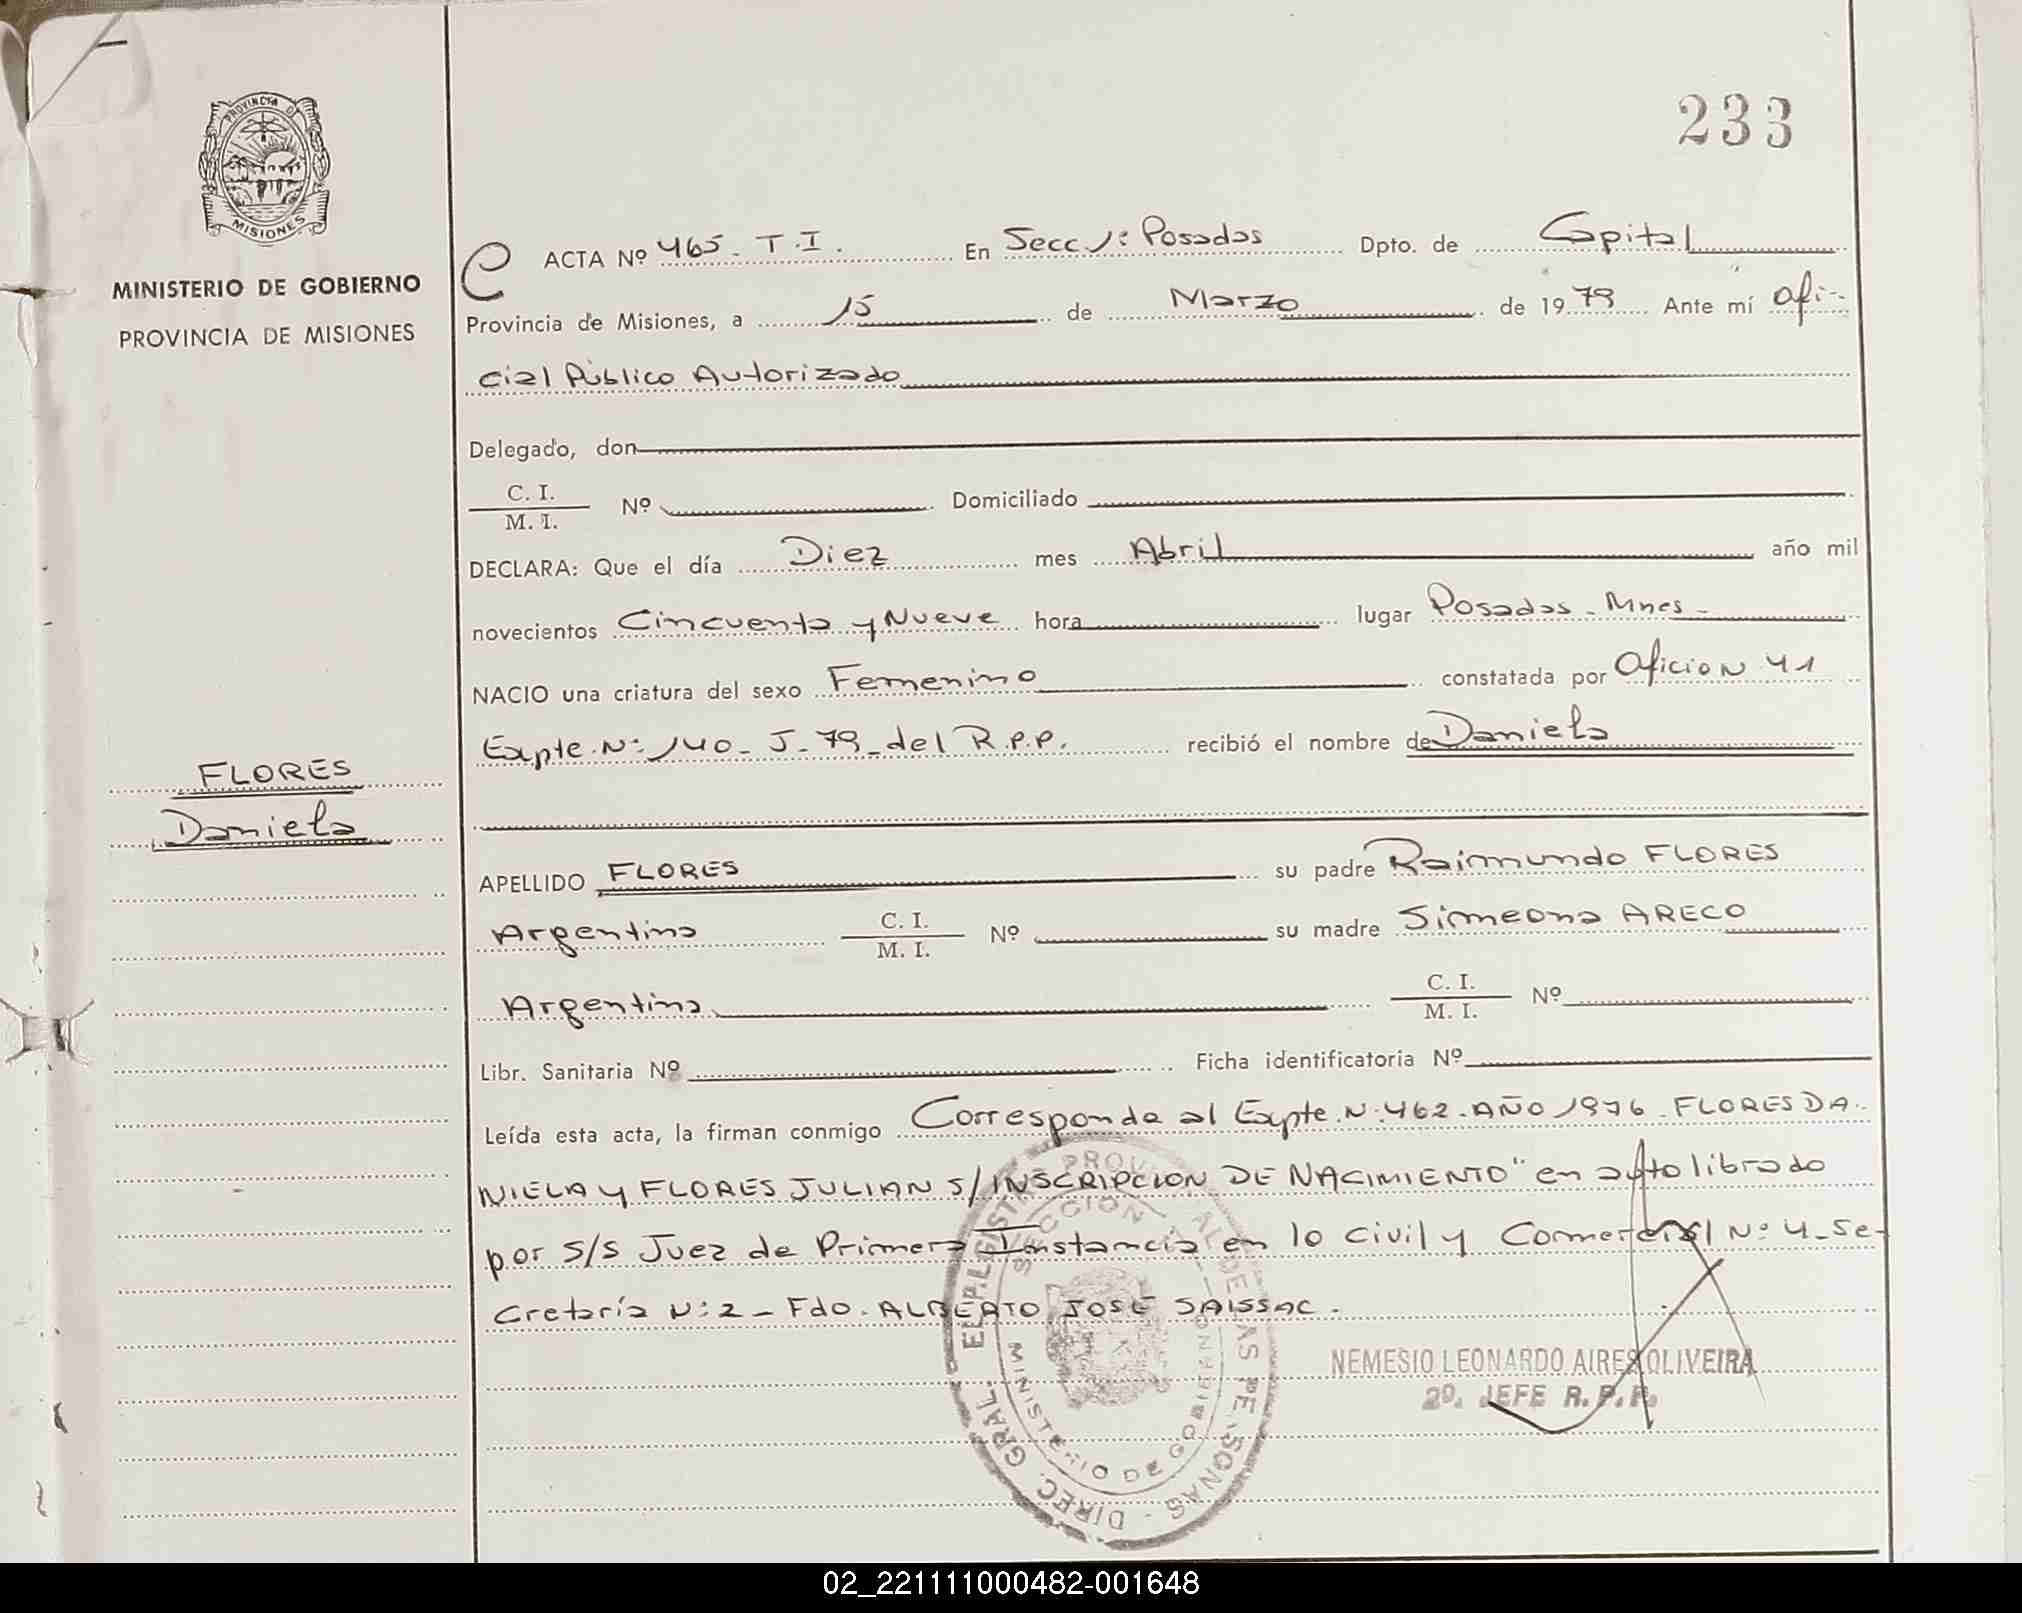 233
PROVINCIA DE
MISIONES
MINISTERIO DE GOBIERNO
PROVINCIA DE MISIONES
ACTA Nº 465 - T.I. En Secc 1: Posadas Dpto. de Capital
Provincia de Misiones, a 15 de Marzo de 1979 Ante mí Ofi-
cial Público Autorizado
Delegado, don
C. I.
M. I. Nº Domiciliado
DECLARA: Que el día Diez mes Abril año mil
novecientos Cincuenta y Nueve hora lugar Posadas - Mnes -
NACIO una criatura del sexo Femenino constatada por Oficio N 41
Expte. Nº 140 - J - 79 - del R.P.P. recibió el nombre de Daniela
FLORES
Daniela
APELLIDO FLORES su padre Raimundo FLORES
Argentino C. I. M. I. Nº su madre Simeona ARECO
Argentina C. I. M. I. Nº
Libr. Sanitaria Nº Ficha identificatoria Nº
Leída esta acta, la firman conmigo Corresponde al Expte. Nº 462 - AÑO 1976 - FLORES DA-
NIELA y FLORES JULIAN S/INSCRIPCION DE NACIMIENTO" en auto librado
por S/S Juez de Primera Instancia en lo Civil y Comercial Nº 4 - Se-
cretaría Nº 2 - Fdo. ALBERTO JOSÉ SAISSAC.
NEMESIO LEONARDO AIRES OLIVEIRA
2º. JEFE R.P.P.
DIREC. GRAL.
SECCION
MINISTERIO DE GOBIERNO
02_221111000482-001648